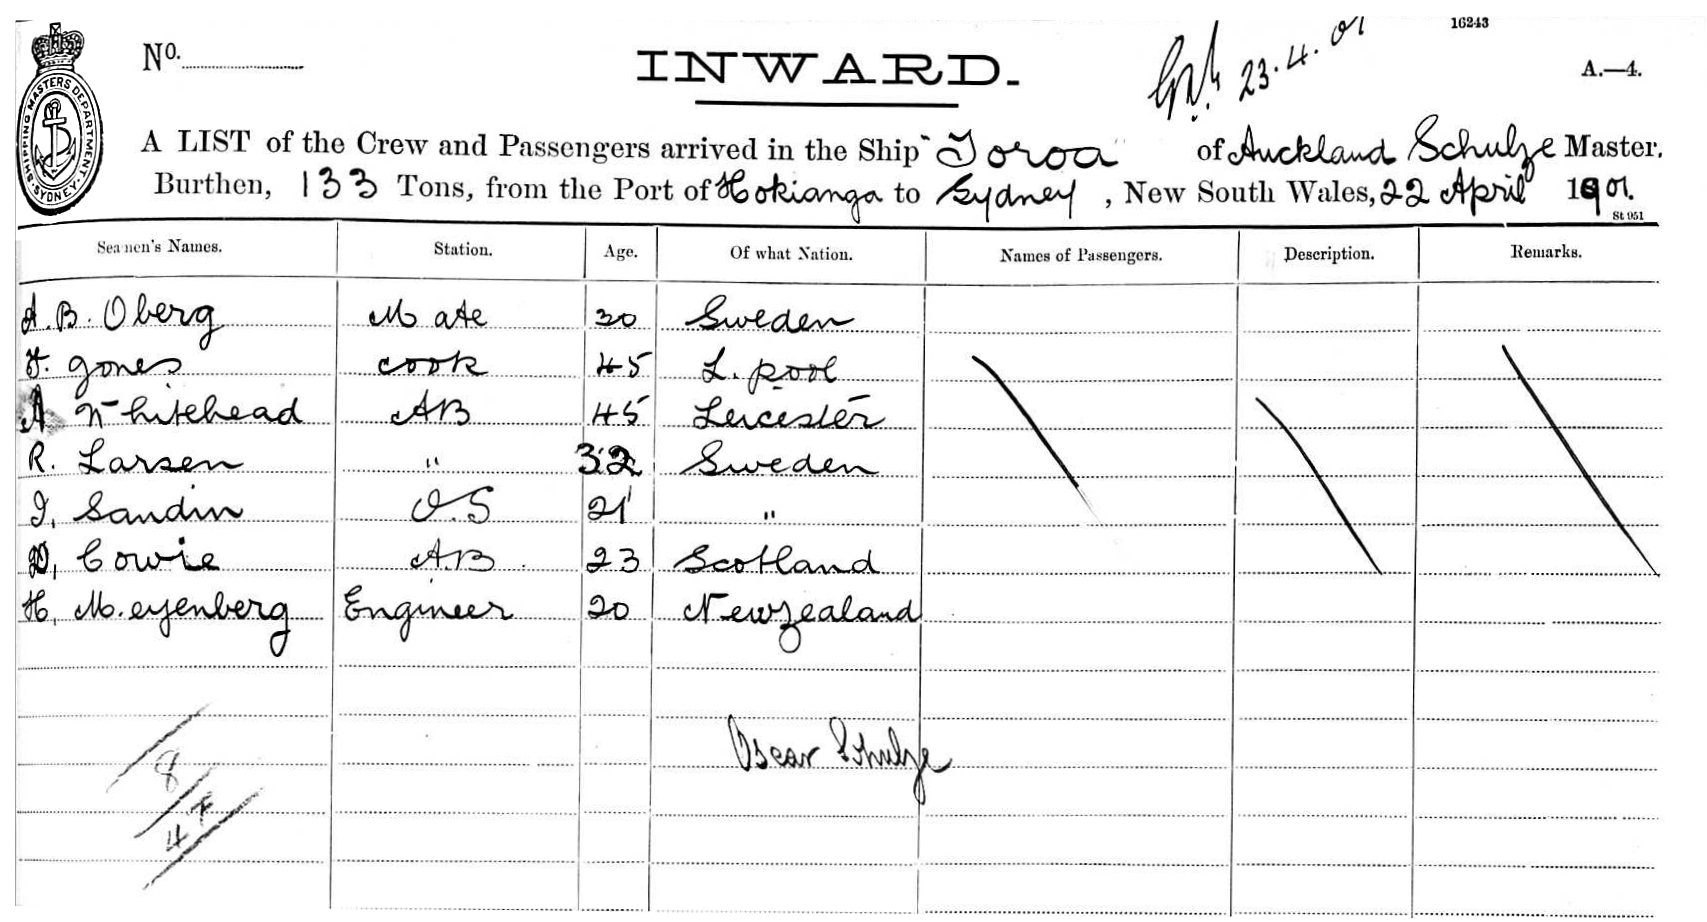 16243
No.
INWARD.
23.4.01
A.—4.
SHIPPING MASTERS DEPARTMENT. SYDNEY
A LIST of the Crew and Passengers arrived in the Ship "Toroa" of Auckland Schulze Master.
Burthen, 133 Tons, from the Port of Hokianga to Sydney, New South Wales, 22 April 1901.
St 951
Seamen's Names. Station. Age. Of what Nation. Names of Passengers. Description. Remarks.
A. B. Oberg Mate 30 Sweden
F. Jones cook 45 L. pool
A Whitehead AB 45 Leicester
R. Larsen " 32 Sweden
I. Sandin O.S 21 "
D, Cowie A.B 23 Scotland
H. Meyenberg Engineer 20 Newzealand
Oscar Schulze
8
4